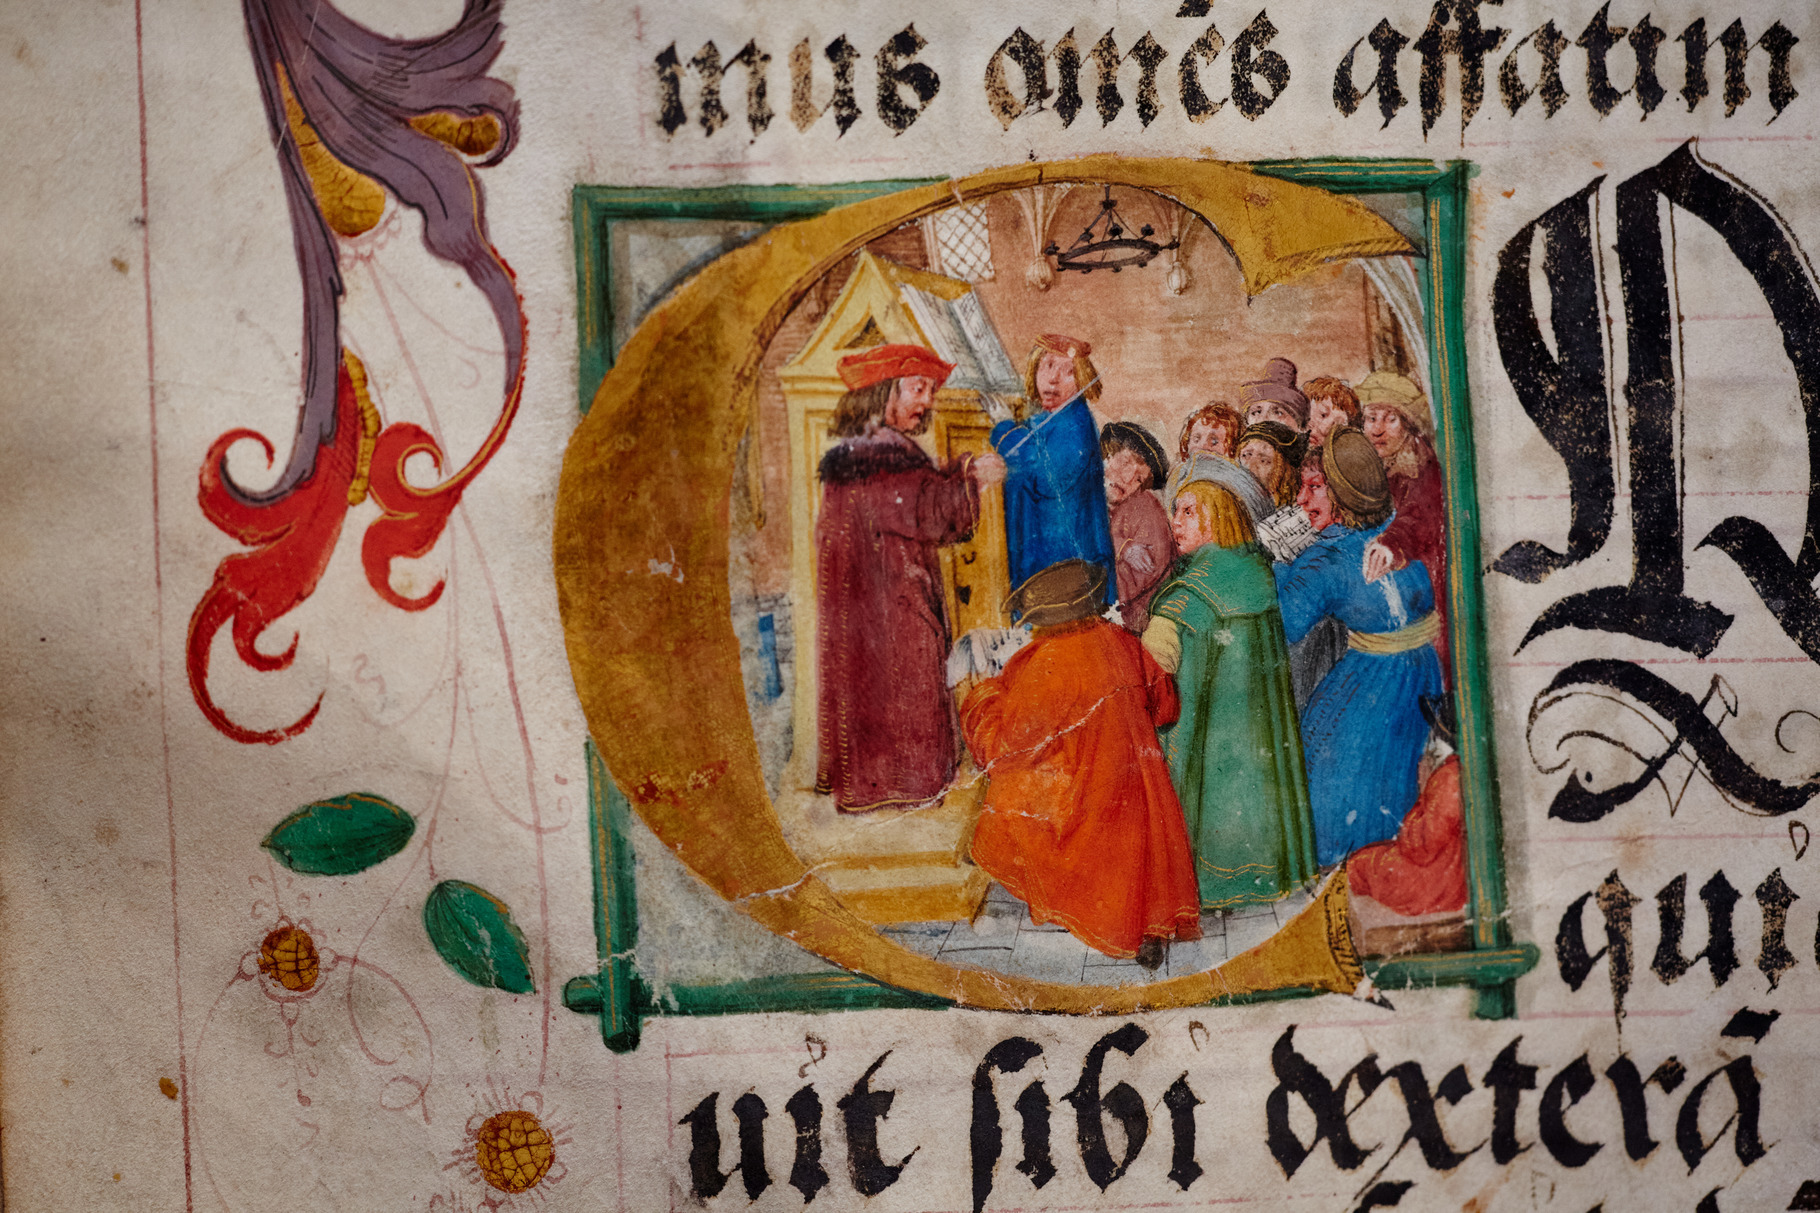 mus omēs affatim
CA
qui
uit sibi dexterā